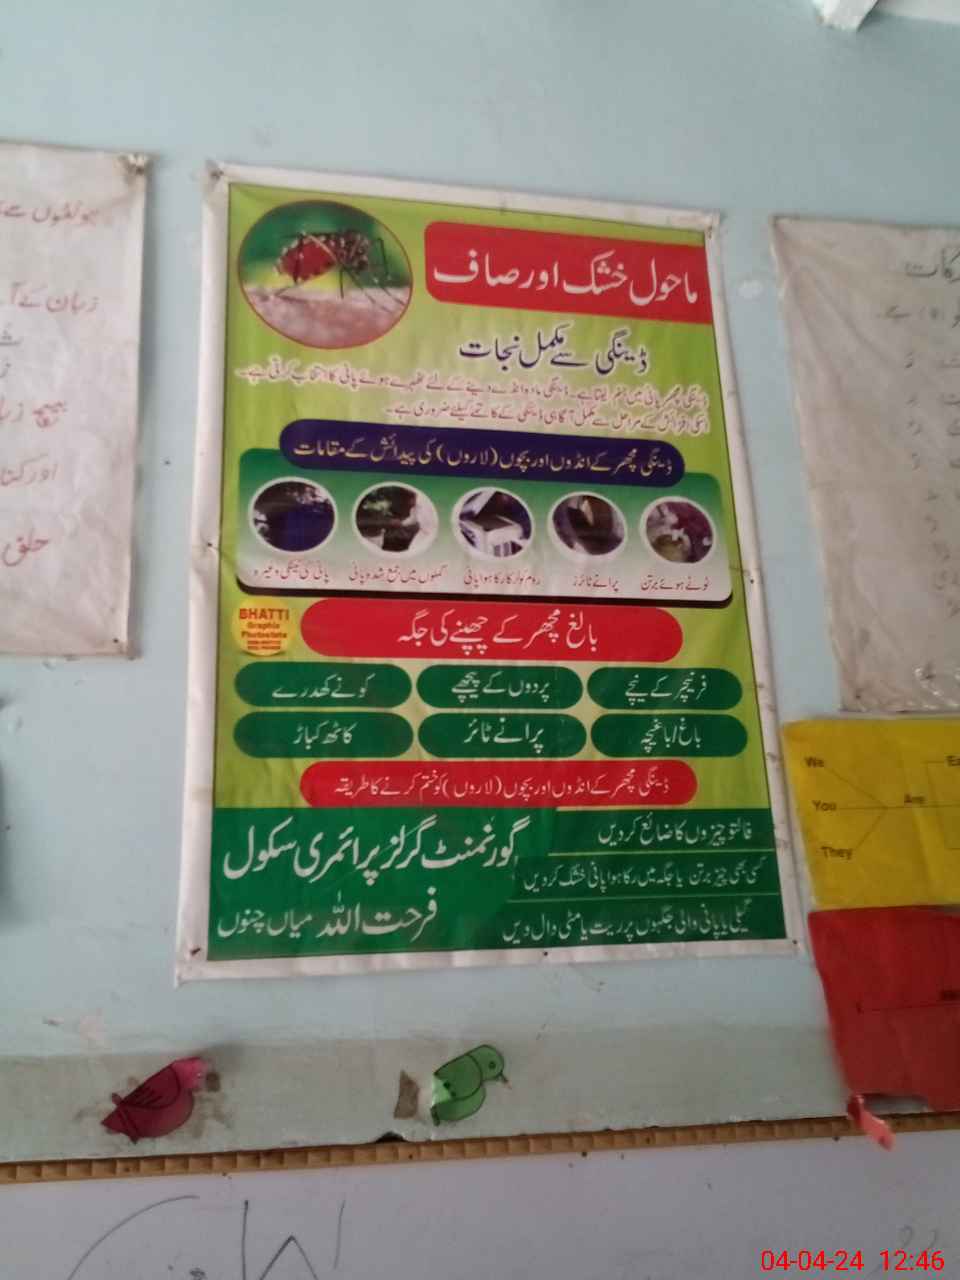 ماحول خشک اور صاف
ڈینگی سے مکمل نجات
ڈینگی مچھر پانی میں جنم لیتا ہے۔ ڈینگی مادہ انڈے دینے کے لئے ٹھہرے ہوئے پانی کا انتخاب کرتی ہے۔
اسکی افزائش کے مراحل سے مکمل آگاہی ڈینگی کے خاتمے کیلئے ضروری ہے۔
ڈینگی مچھر کے انڈوں اور بچوں (لاروں) کی پیدائش کے مقامات
ٹوٹے ہوئے برتن
پرانے ٹائرز
روم کولر کا رکا ہوا پانی
گملوں میں جمع شدہ پانی
پانی کی ٹینکی وغیرہ
BHATTI
Graphic
Photostate
بالغ مچھر کے چھپنے کی جگہ
فرنیچر کے نیچے
پردوں کے پیچھے
کونے کھدرے
باغ/باغیچہ
پرانے ٹائر
کاٹھ کباڑ
ڈینگی مچھر کے انڈوں اور بچوں (لاروں) کو ختم کرنے کا طریقہ
فالتو چیزوں کا ضائع کردیں
کسی بھی چیز برتن یا جگہ میں رکا ہوا پانی خشک کردیں
گیلی یا پانی والی جگہوں پر ریت یا مٹی ڈال دیں
گورنمنٹ گرلز پرائمری سکول
فرحت اللہ میاں چنوں
ہونٹوں سے
زبان کے آ
بیچ زبا
اور کتا
حلق
We
You
They
Are
04-04-24 12:46